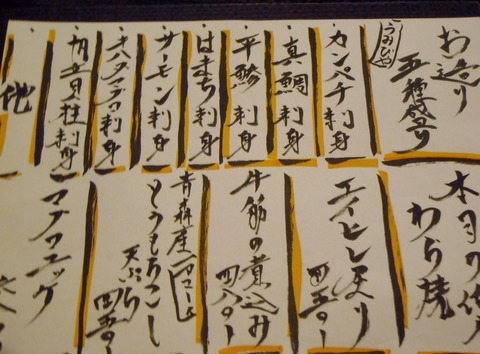 お造り
五種盛り
カンパチ刺身
真鯛刺身
平鯵刺身
はまち刺身
サーモン刺身
キハダマグロ刺身
帆立貝柱刺身
他
本日の
わら焼
エイヒレ炙り
四五〇-
牛筋の煮込み
四八〇-
青森産
とうもろこし
天ぷら
四五〇-
マグロユッケ